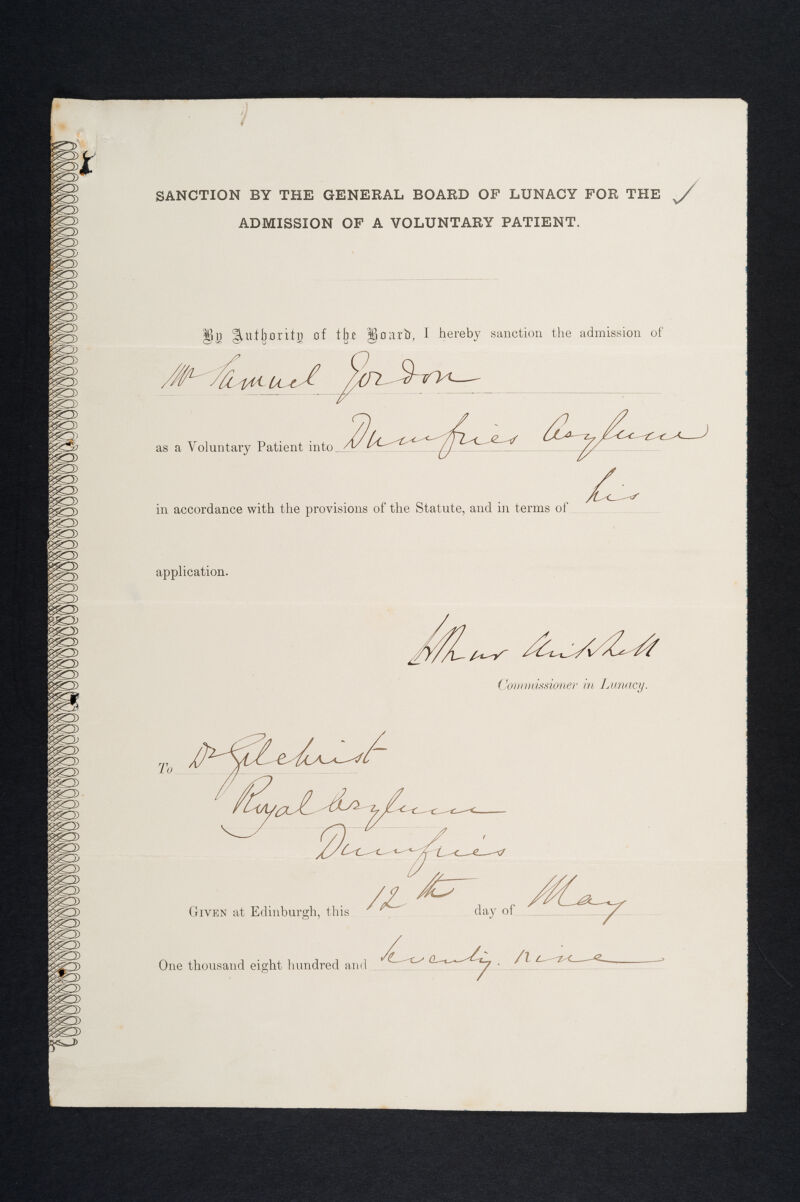 SANCTION BY THE GENERAL BOARD OF LUNACY FOR THE
ADMISSION OF A VOLUNTARY PATIENT.
By Authority of the Board, I hereby sanction the admission of
Mr Samuel Gordon
as a Voluntary Patient into Dumfries Asylum
in accordance with the provisions of the Statute, and in terms of his
application.
Arthur Mitchell
Commissioner in Lunacy.
To Dr Gilchrist
Royal Asylum
Dumfries
GIVEN at Edinburgh, this 12th day of May
One thousand eight hundred and seventy-nine